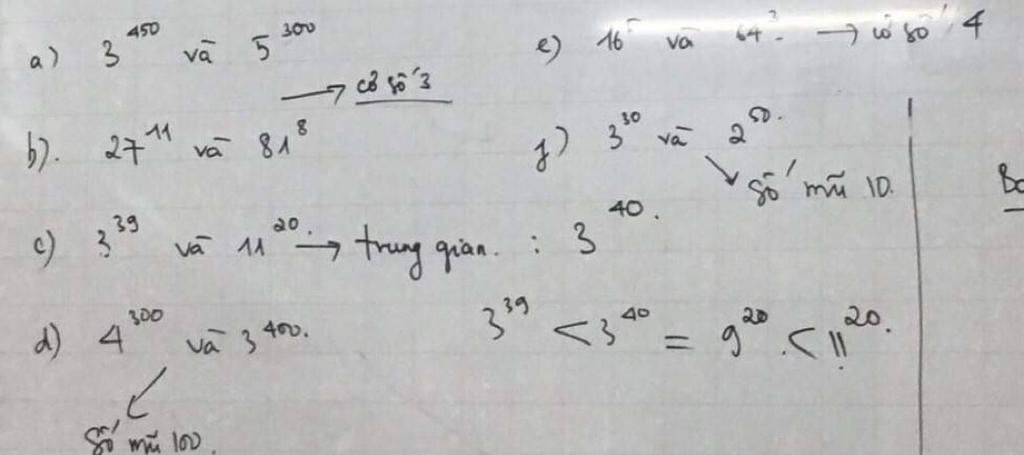 a) 3^450 và 5^300
e) 16^5 và 64^3. → cơ số 4
→ cơ số 3
b). 27^11 và 81^8
f) 3^30 và 2^50.
số mũ 10.
c) 3^39 và 11^20. → trung gian. : 3^40.
d) 4^300 và 3^400.
3^39 < 3^40 = 9^20. < 11^20.
số mũ 100.